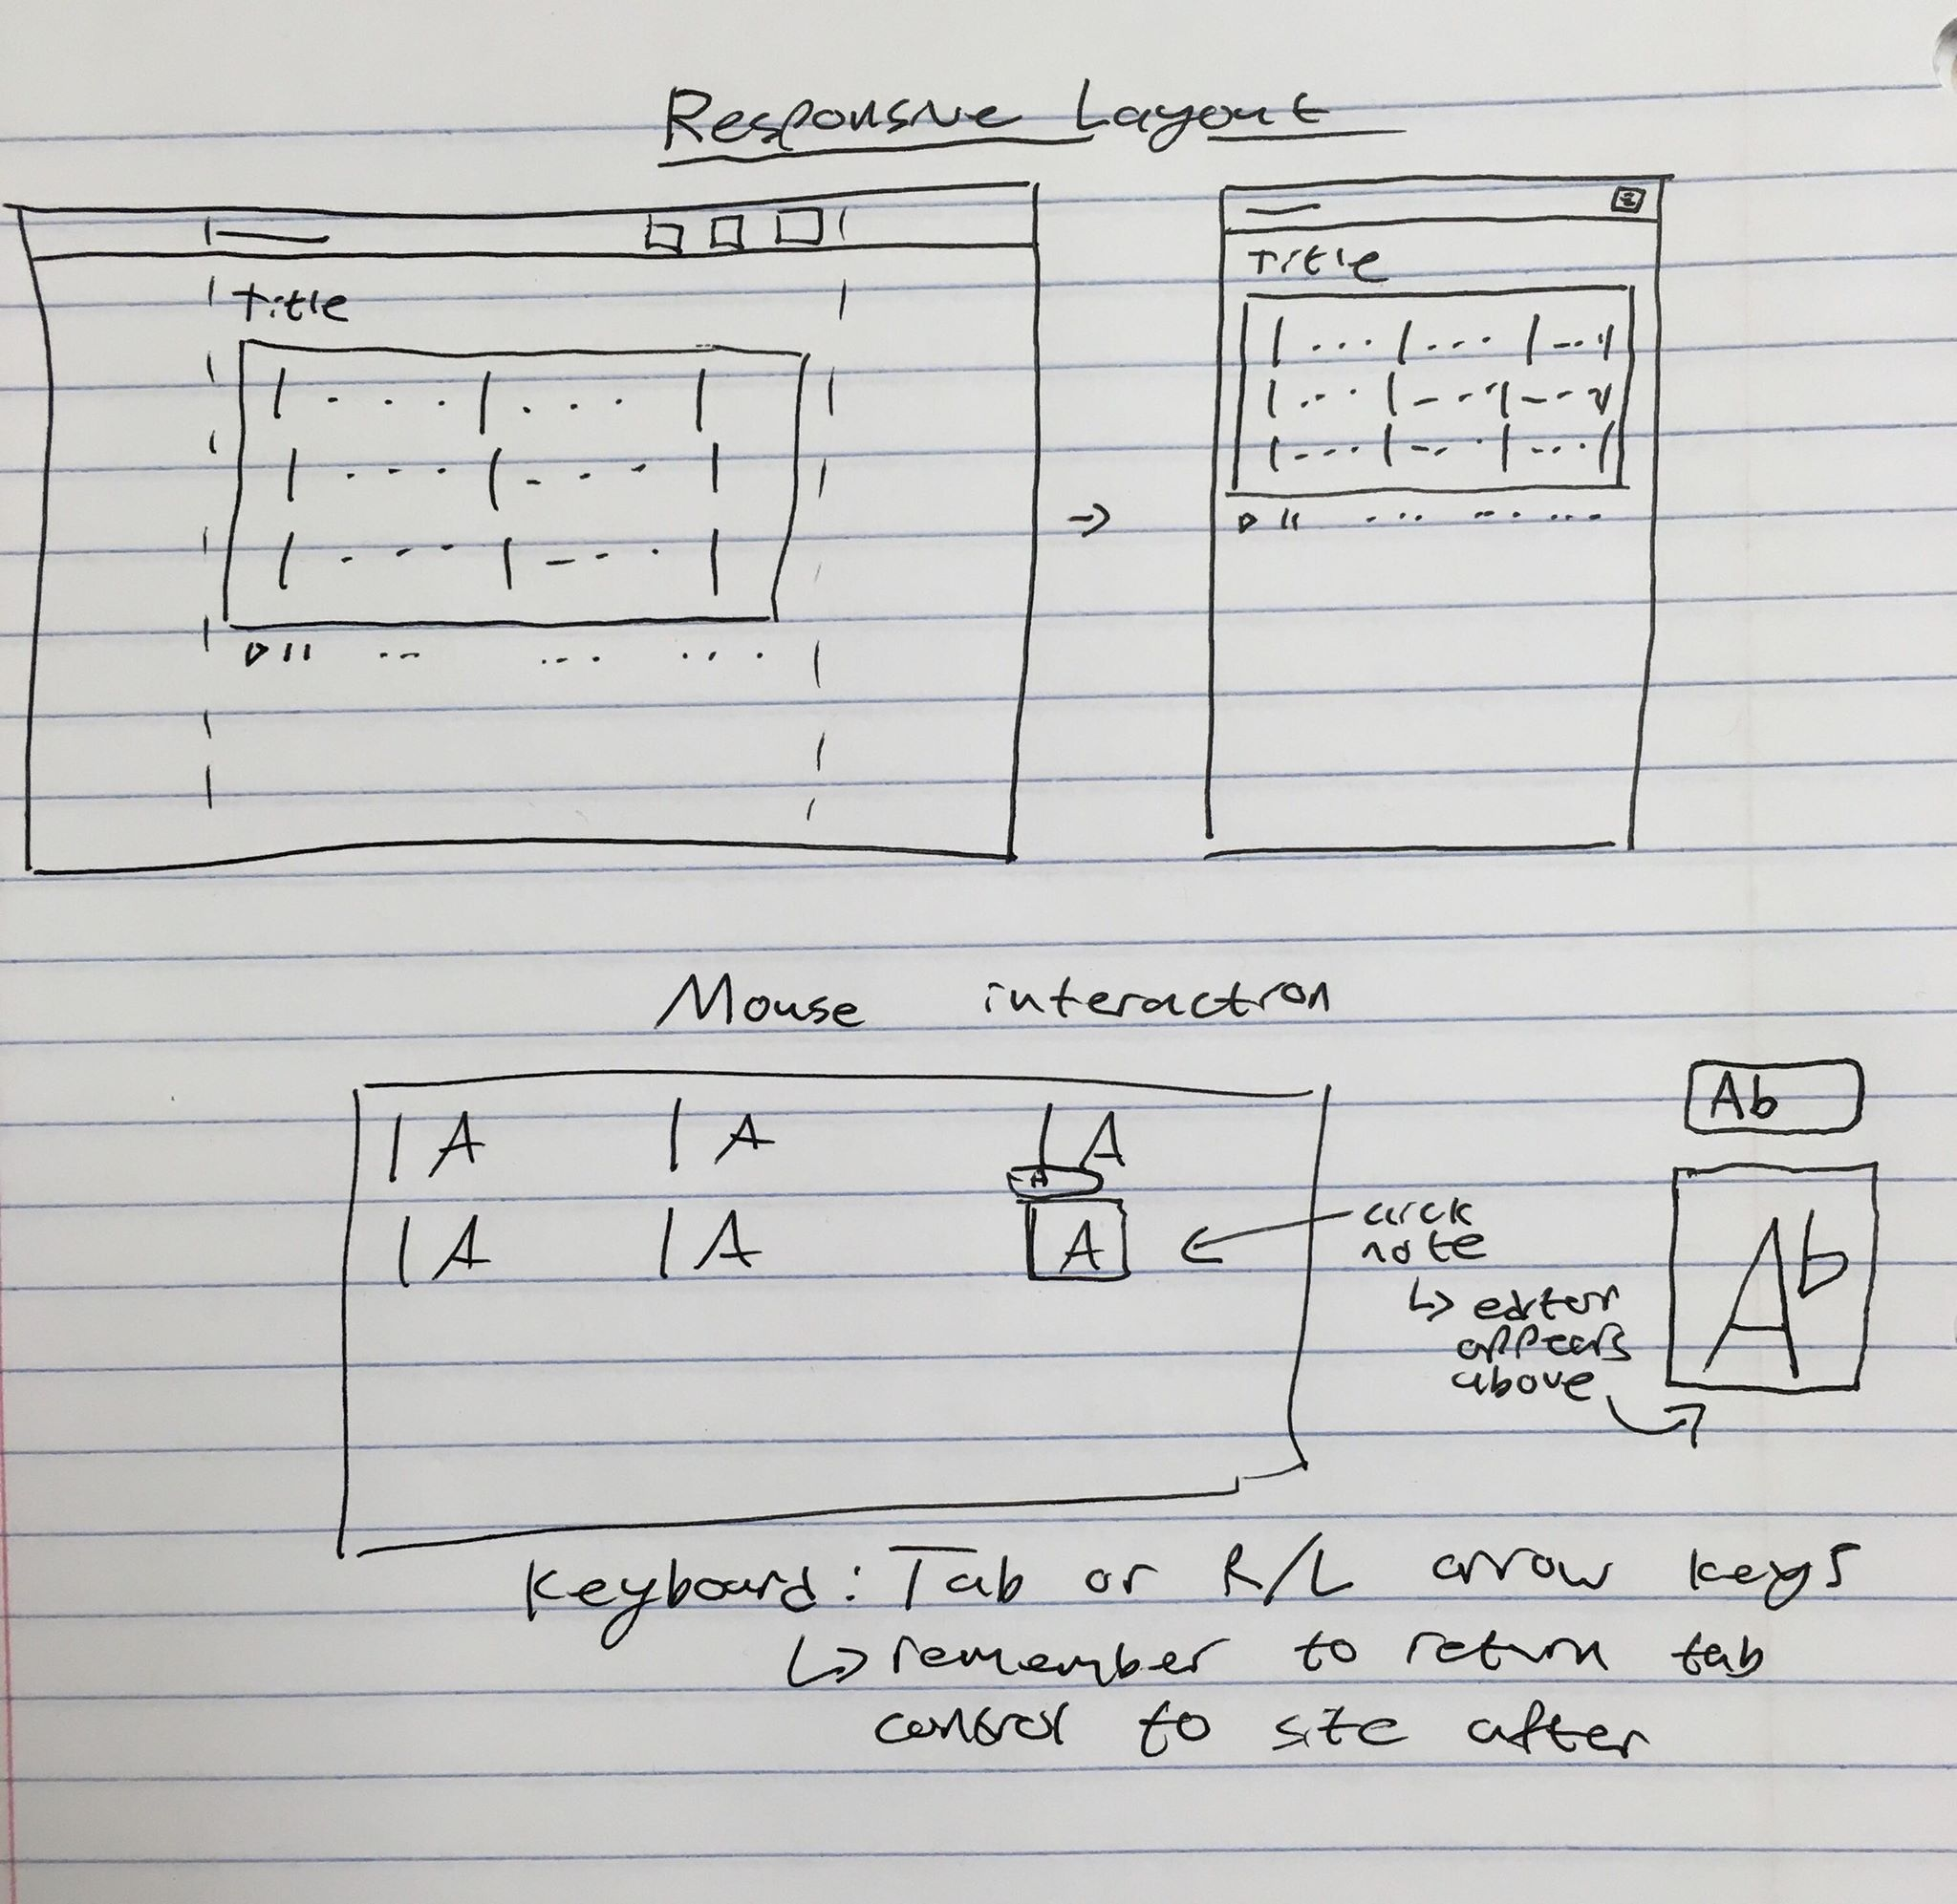 Responsive Layout
Title
Title
Mouse interaction
A A A
A
A A A
Ab
Ab
click
note
↳ editor
appears
above
Keyboard: Tab or R/L arrow keys
↳ remember to return tab
control to site after